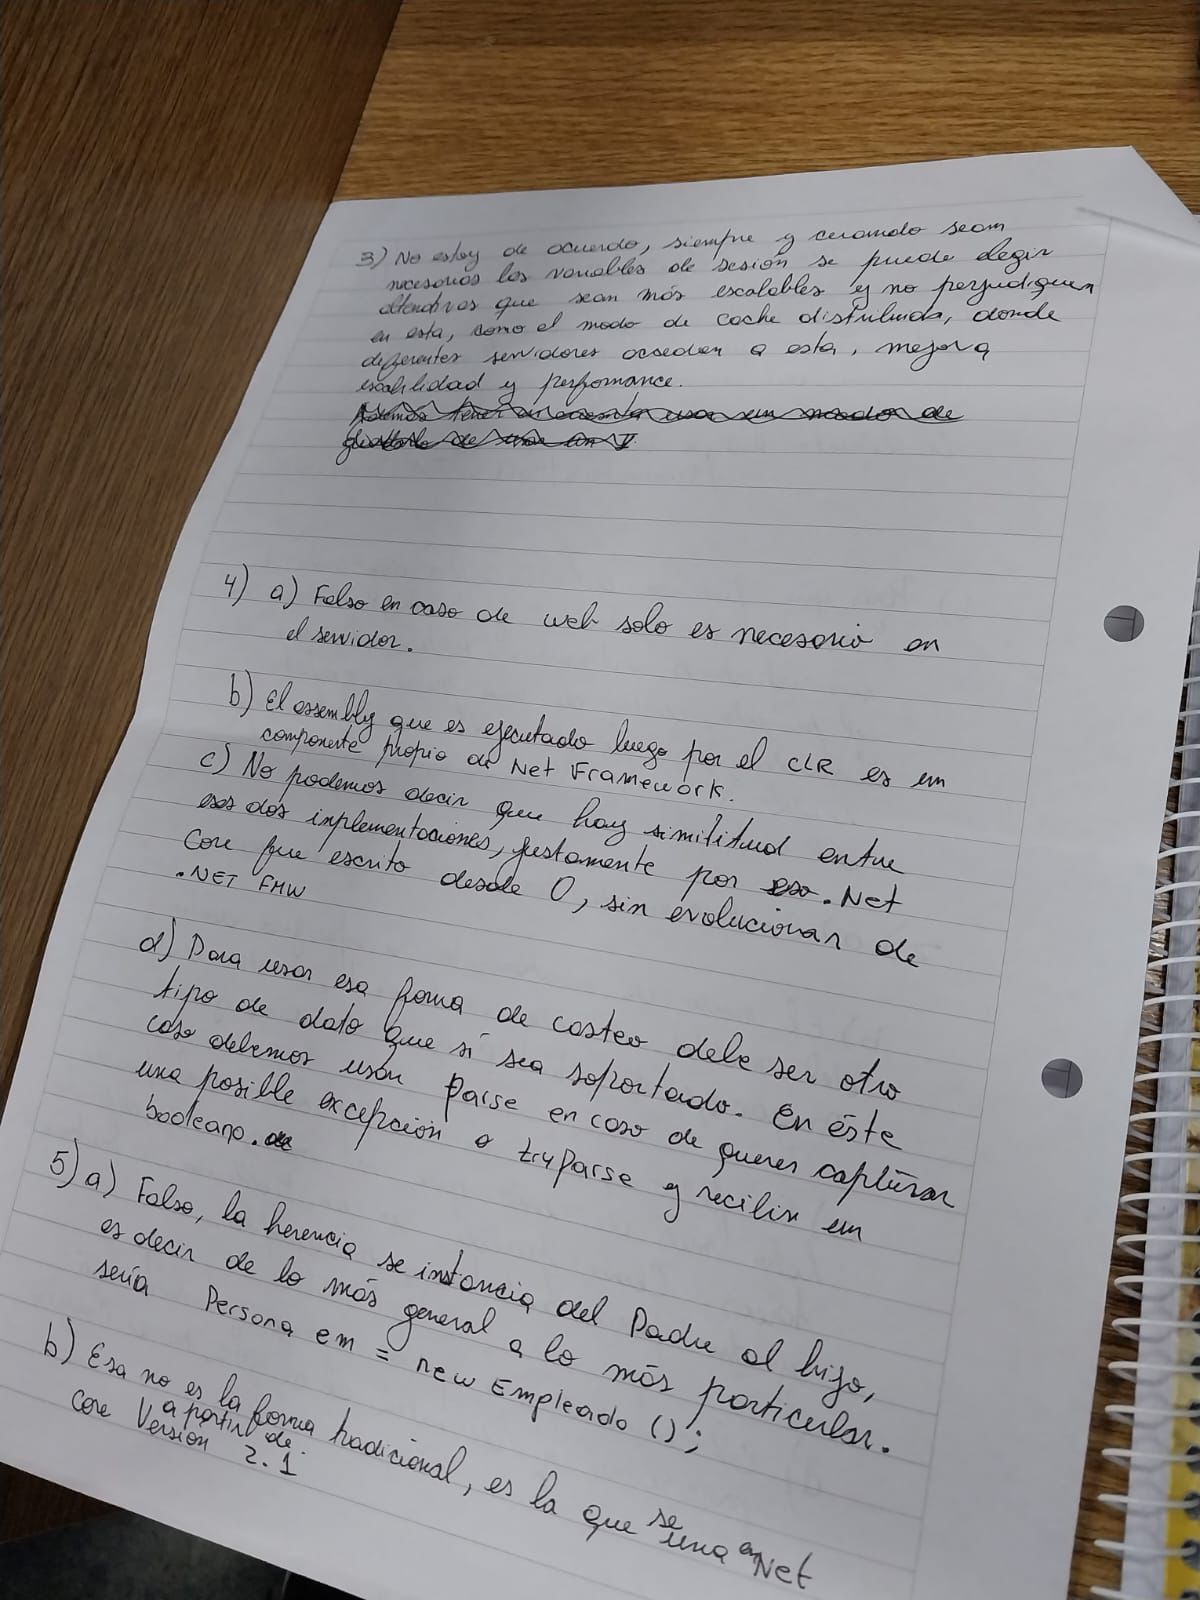 3) No estoy de acuerdo, siempre y cuando sean
necesarios las variables de sesión se puede elegir
que sean más escalables y no perjudiquen
en esta, como el modo de cache distribuida, donde
diferentes servidores acceden a esta, mejora
escalabilidad y performance.
4) a) Falso en caso de web solo es necesario en
el servidor.
b) El assembly que es ejecutado luego por el CLR es un
componente propio de Net Framework.
c) No podemos decir que hay similitud entre
esas dos implementaciones, justamente por eso .Net
Core fue escrito desde 0, sin evolucionar de
.NET FMW
d) Para usar esa forma de casteo debe ser otro
tipo de dato que si sea soportado. En éste
caso debemos usar Parse en caso de querer capturar
una posible excepción o tryParse y recibir un
booleano.
5) a) Falso, la herencia se instancia del Padre al hijo,
es decir de lo más general a lo más particular.
sería Persona em = new Empleado ();
b) Esa no es la forma tradicional, es la que se usa en Net
a partir de
core Versión 2.1